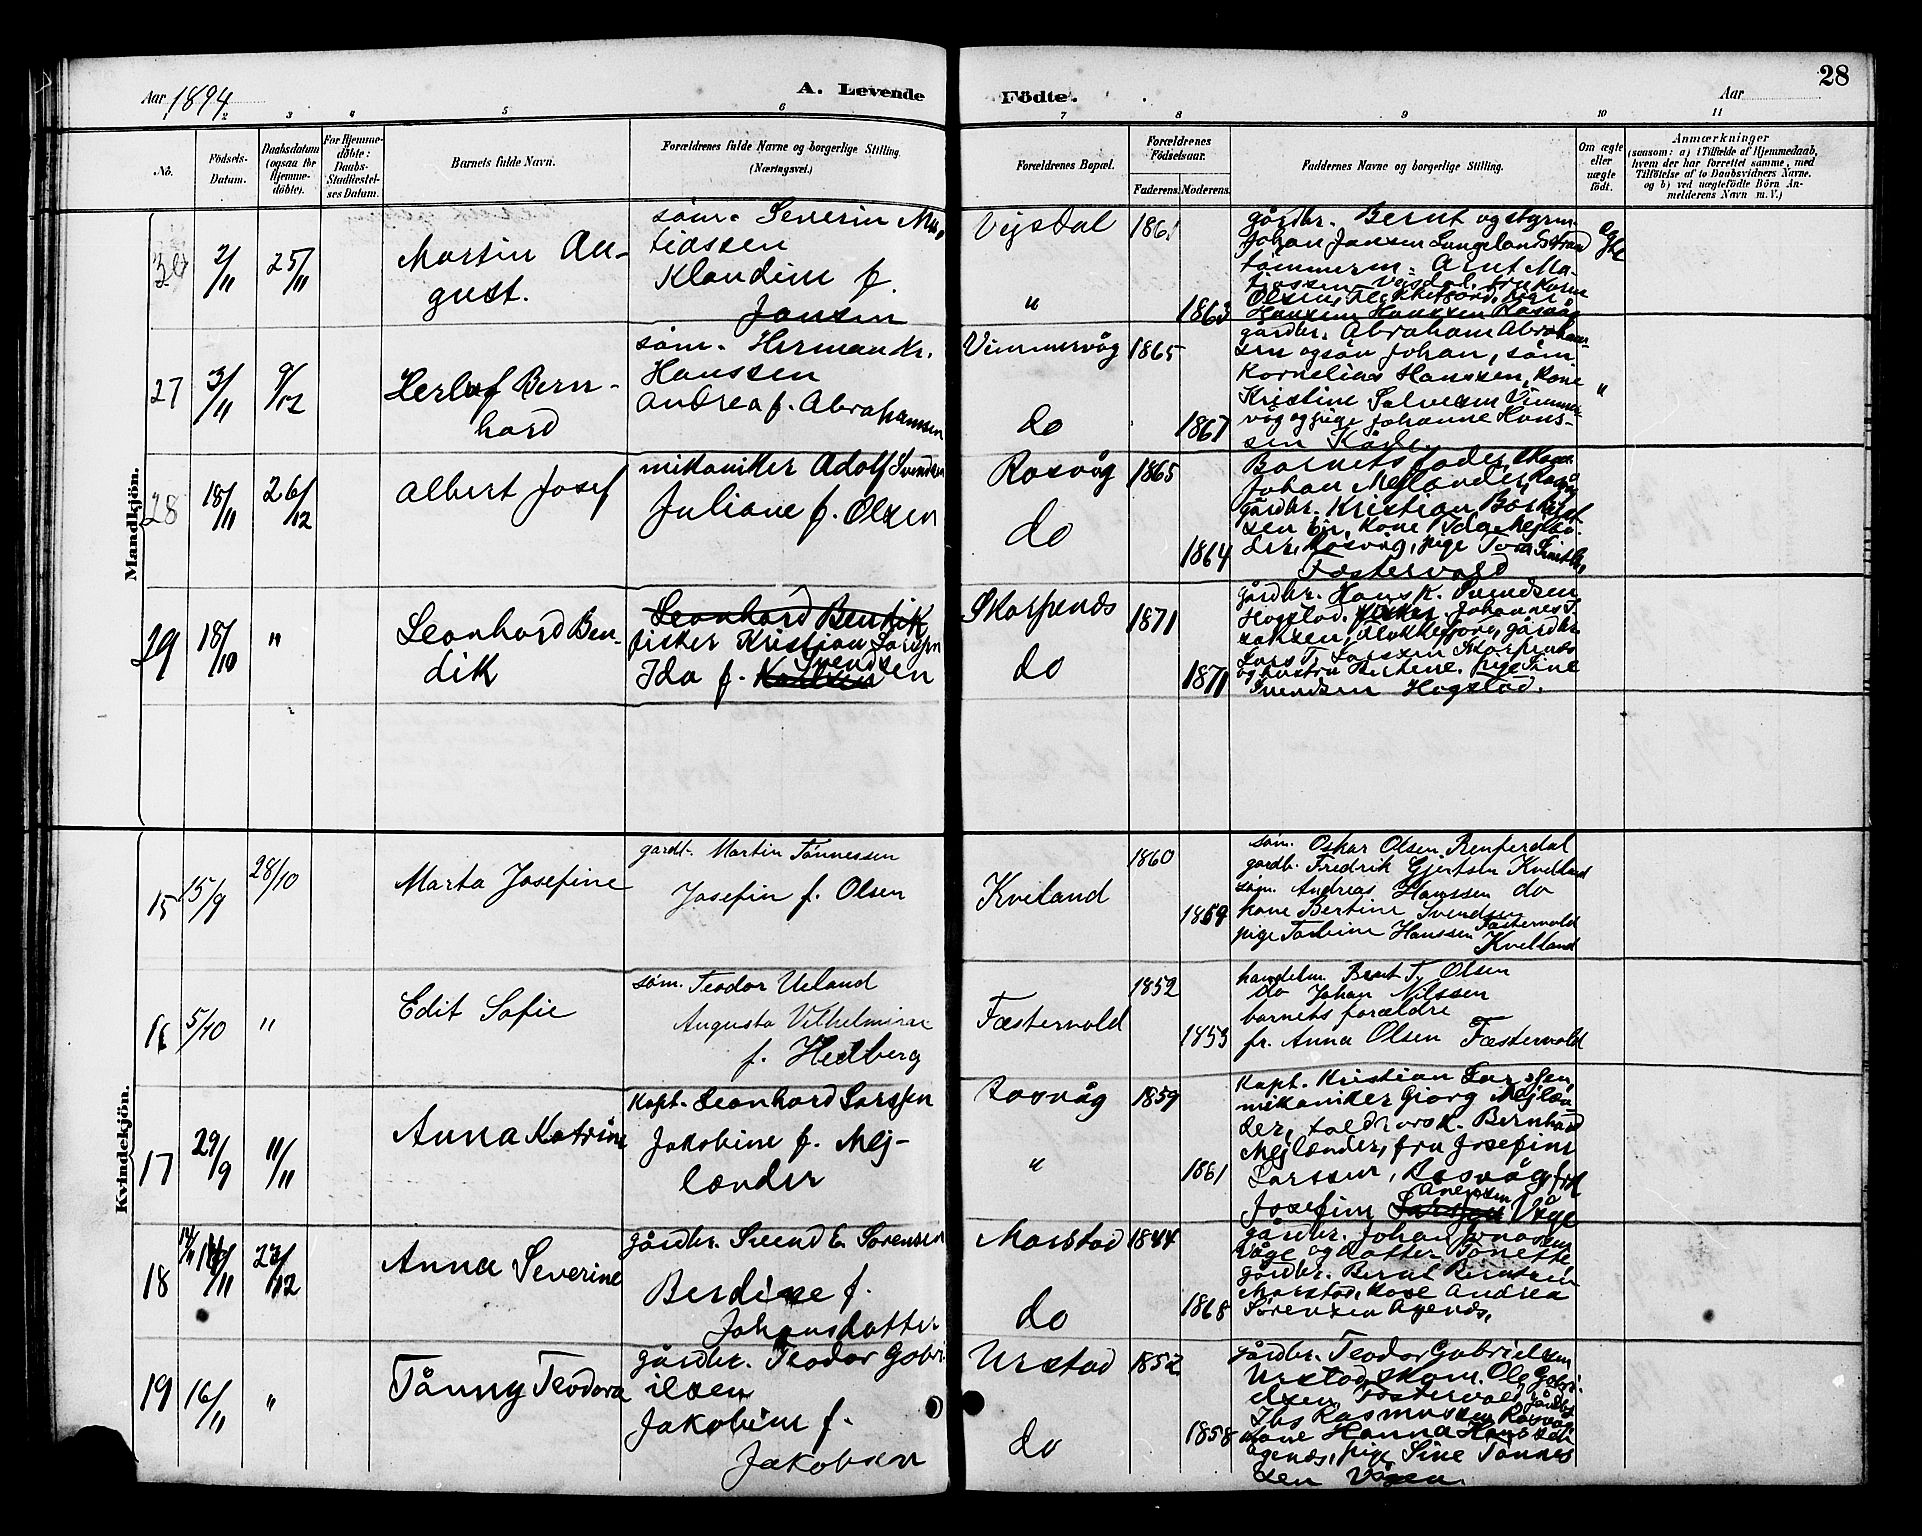 28
Aar 1894
A. Levende
Födte.
Aar
2 3 4 5 6 7 8 9 10 11
No.
Födsels-
Datum.
Daabsdatum
(ogsaa for
Hjemme-
döbte).
For Hjemme-
döbte:
Daabs-
Stadfæstel-
ses Datum.
Barnets fulde Navn.
Forældrenes fulde Navne og borgerlige Stilling.
(Næringsvei.)
Forældrenes Bopæl.
Forældrenes
Födselsaar.
Faderens.
Moderens.
Faddernes Navne og borgerlige Stilling.
Om ægte
eller
uægte
födt.
Anmærkninger
(saasom: a) i Tilfælde af Hjemmedaab,
hvem der har forrettet samme, med
Tilföielse af to Daabsvidners Navne.
og b) ved uægtefödte Börn An-
melderens Navn m. V.)
Mandkjön.
2/11
25/11
Martin Au-
gust.
søm. Severin Ma-
tiassen
Klaudine f.
Jansen
Vejsdal
"
1861
1863
gårdbr. Bernt og styrm.
Johan Jansen Lungelandsstrand
tømmerm. Arnt Ma-
tiassen Vejsdal, fru Karen
Olsen, Flekkefjord,
Hanssen Rasvåg
ægte
27
3/11
9/12
Herlof Bern-
hard
søm. Herman Kr.
Hanssen
Andrea f. Abrahamsen
Vimmervåg
do
1865
1867
gårdbr. Abraham Abraham-
sen og søn Johan, søm
Kornelius Hanssen, kone
Kristine Salvesen Vimmer-
våg og pige Johanne Hans-
sen Kåde.
"
28
18/11
26/12
Albert Josef
mekaniker Adolf Svendsen
Juliane f. Olsen
Rasvåg
do
1865
1864
Barnets fader,
Johan Mejlænder, Rasvåg
gårdbr. Kristian
sen kone Ida Mejlæn-
der, Rasvåg, pige Tora
Fæstervold
29
18/10
"
Leonhard Ben-
dik
Leonhard Bendik
fisker Kristian Larssen
Ida f. Karlsen Svendsen
Skarpenæs
do
1871
1871
gårdbr. Hans K. Svendsen
Hogstad, Johannes I-
saksen, Flekkefjord, gårdbr.
Lars T. Larssen Skarpenæs
og hustru Bertine, pige Sine
Svendsen Hogstad.
Kvindekjön.
15
15/9
28/10
Marta Josefine
gardb. Martin Tønnessen
Josefin f. Olsen
Kveland
1860
1859
søm. Oskar Olsen Renferdal
gardb. Fredrik Gjertsen Kvelland
søm. Andreas Hanssen do
kone Bertine Svendsen Fæstervold
pige Tobine Hanssen Kvelland
16
5/10
"
Edit Sofie
søm. Teodor Ueland
Augusta Vilhelmine
f. Hedberg
Fæstervold
1852
1853
handelm. Bernt T. Olsen
do Johan Nilssen
barnets forældre
fr. Anna Olsen Fæstervold
17
29/9
11/11
Anna Katrine
Kapt. Leonhard Larssen
Jakobine f. Mej-
lænder
Rasvåg
"
1859
1861
Kapt. Kristian Larssen,
mekaniker Giorg Mejlæn-
der, toldrorsk. Bernhard
Mejlænder, fru Josefine
Larssen, Rasvåg, frk
Josefine Larssen Anensen Våge
18
14/11
26/12
Anna Severine
gårdbr. Svend E. Sørensen
Berdine f.
Johansdatter
Marstad
do
1844
1868
gårdbr. Johan Jonassen
Våge og datter Tonette
gårdbr. Bernt Berntsen
Marstad, kone Andrea
Sørensen Agenæs.
19
16/11
"
Tånny Teodora
gårdbr. Teodor Gabri-
ilsen
Jakobine f.
Jakobsen
Urstad
do
1852
1858
gårdbr. Teodor Gabrielsen
Urstad, skom. Ole Gabri-
elsen, Fæstervold, gårdbr.
Ibs Rasmussen Rasvåg
kone Hanna Hanssen
Agenæs, pige Sine Tønnes-
sen Vågen.